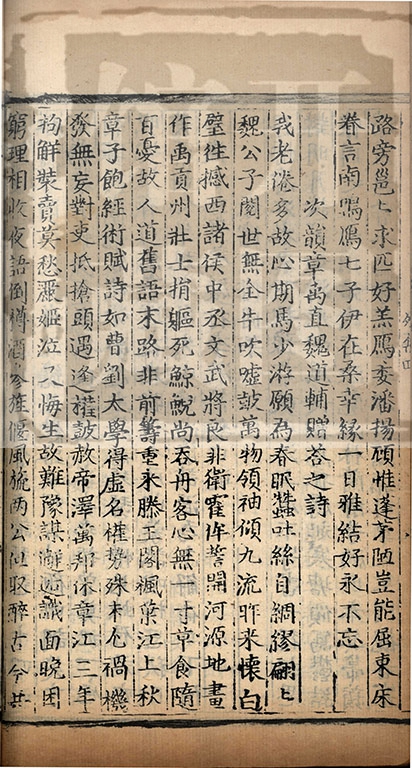 路旁邕邕求匹好羔鴈委潘揚顧惟蓬茅陋豈能屈東床
眷言南鳴鴈七子伊在桑幸緣一日雅結好永不忘
次韻章禹直魏道輔贈荅之詩
我老倦多故心期馬少游願為春眠蠶吐絲自綢繆翩翩
魏公子閱世無全牛吹噓鼓萬物領袖傾九流昨来懷白
璧往撼西諸侯中丞文武將良非衛霍侔誓開河源地畫
作禹貢州壯士捐軀死鯨鯢尚吞舟客心無一寸草食隨
百憂故人道舊語末路非前籌重来滕王閣楓葉江上秋
章子飽經術賦詩如曹劉太學得虛名權勢殊未尤禍機
發無妄對吏抵搶頭遇逢權鼓赦帝澤萬邦休章江三年
拘解裝賣莫愁麗姬泣又悔生故難豫謀邂逅識面晚困
窮理相收夜語倒樽酒參旌偃風旒兩公但取醉古今共